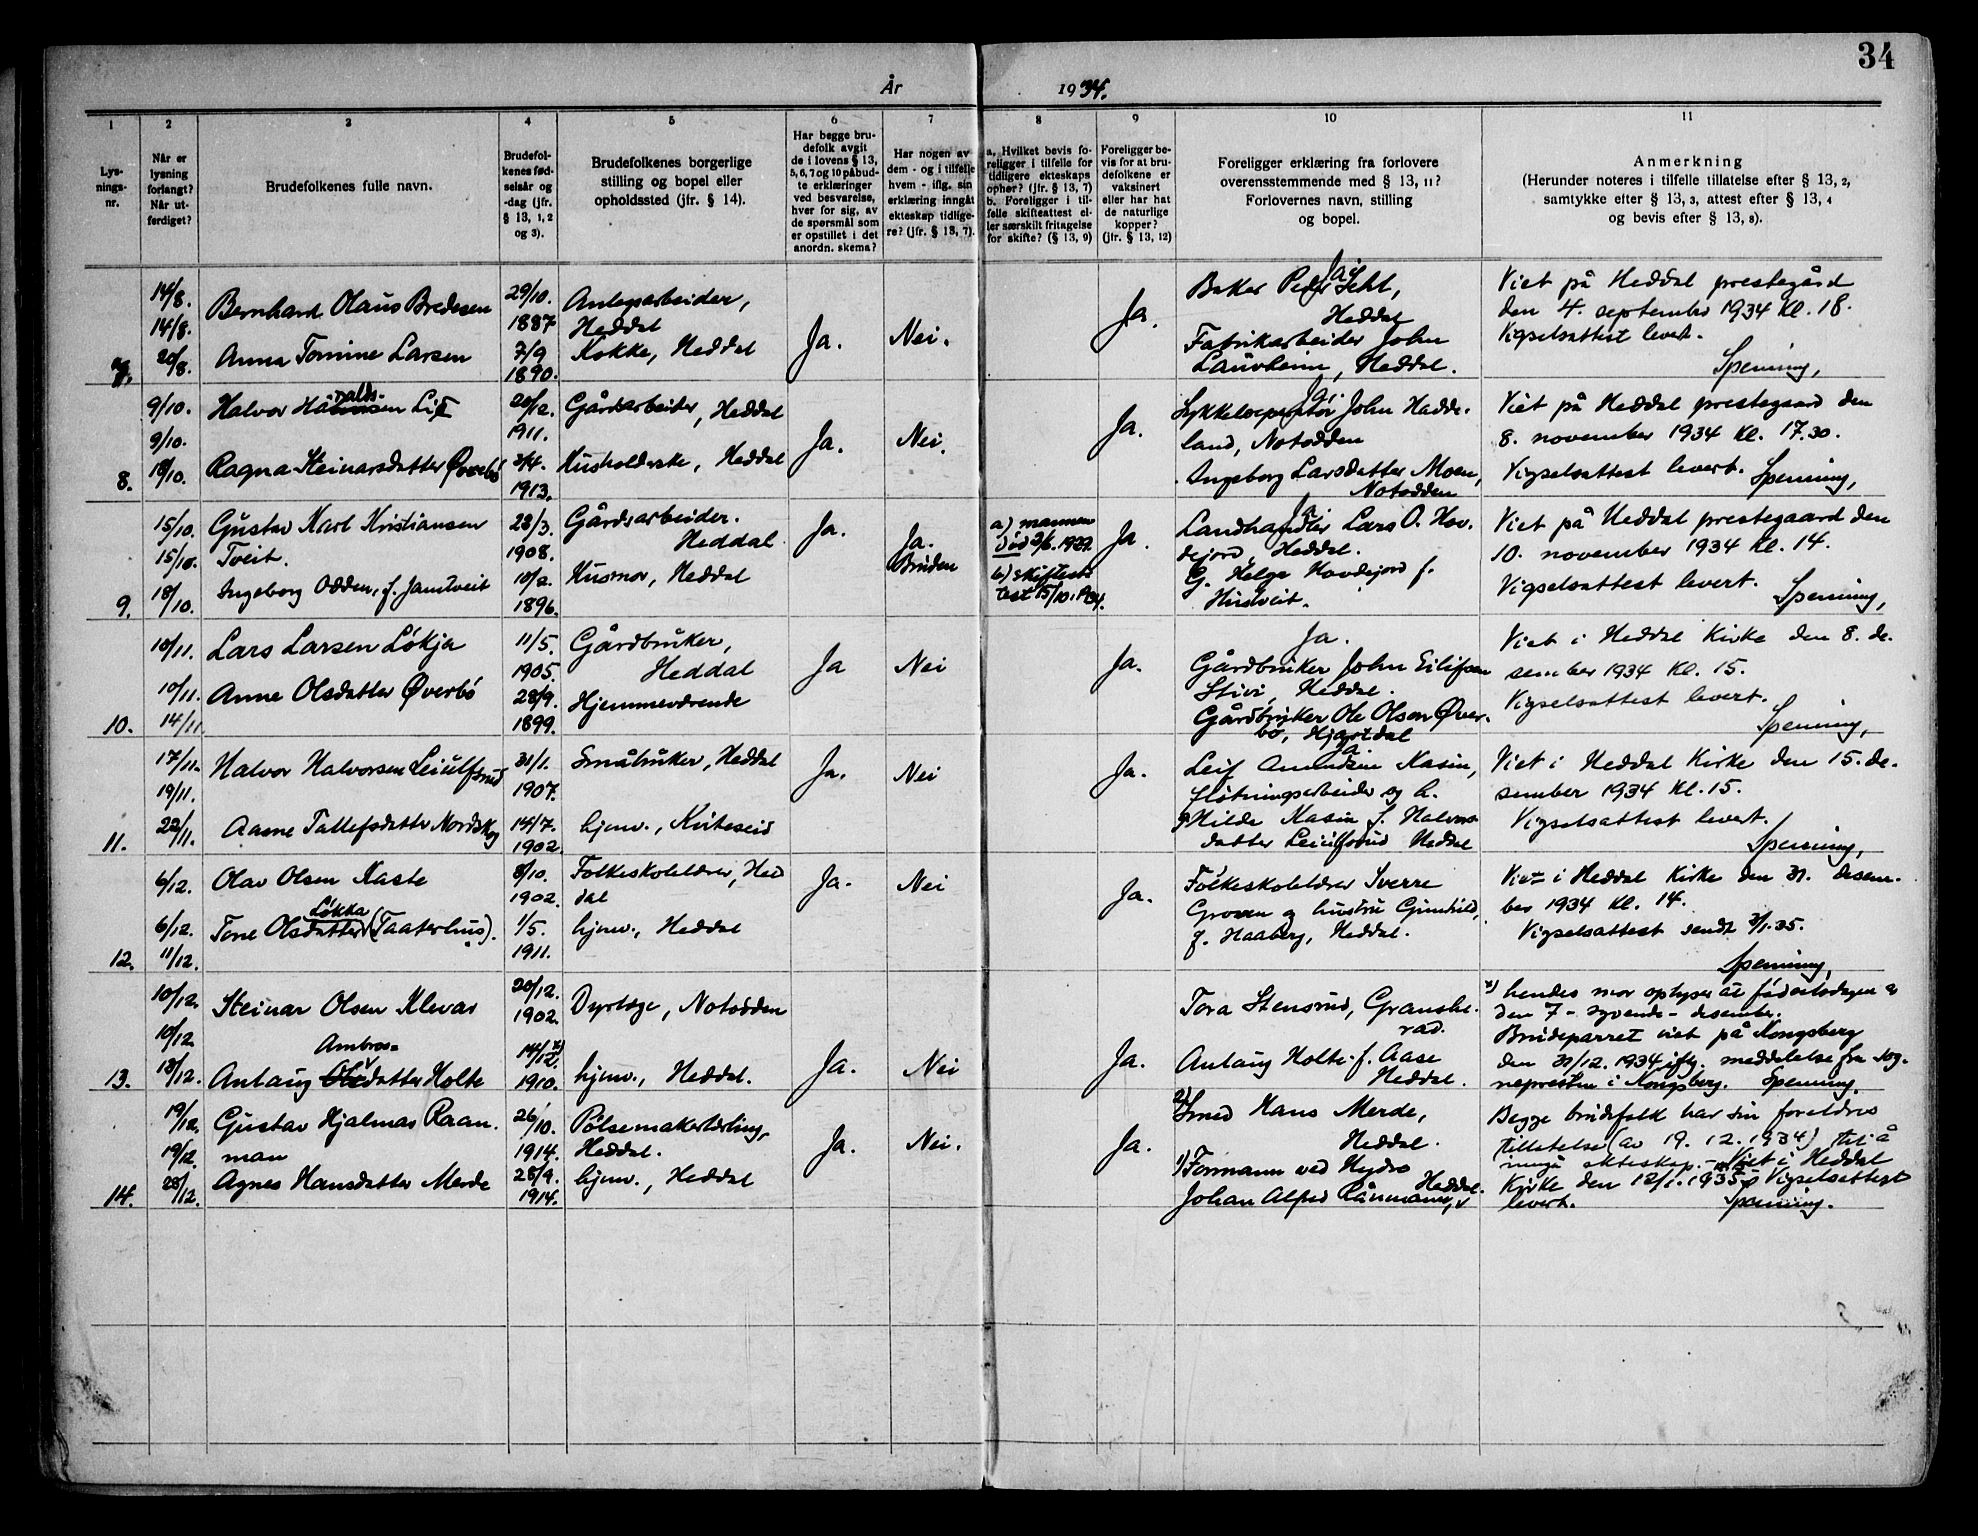 34
År 1934.
1 2 3 4 5 6 7 8 9 10 11
Lys-
nings-
nr.
Når er
lysning
forlangt?
Når ut-
ferdiget?
Brudefolkenes fulle navn.
Brudefol-
kenes fød-
selsår og
-dag (jfr.
§ 13, 1, 2
og 3).
Brudefolkenes borgerlige
stilling og bopel eller
opholdssted (jfr. § 14).
Har begge bru-
defolk avgit
de i lovens § 13,
5, 6, 7 og 10 påbud-
te erklæringer
ved besvarelse,
hver for sig, av
de spørsmål som
er opstillet i det
anordn. skema?
Har nogen av
dem - og i tilfelle
hvem - iflg. sin
erklæring inngått
ekteskap tidlige-
re? (jfr. § 13, 7).
a. Hvilket bevis fo-
religger i tilfelle for
tidligere ekteskaps
ophør? (jfr. § 13, 7)
b. Foreligger i til-
felle skifteattest el-
ler særskilt fritagelse
for skifte? (§ 13, 9)
Foreligger be-
vis for at bru-
defolkene er
vaksinert
eller har hat
de naturlige
kopper?
(jfr. § 13, 12)
Foreligger erklæring fra forlovere
overensstemmende med § 13, 11?
Forlovernes navn, stilling
og bopel.
Anmerkning
(Herunder noteres i tilfelle tillatelse efter § 13, 2,
samtykke efter § 13, 3, attest efter § 13, 4
og bevis efter § 13, 8).
7.
14/8.
14/8.
20/8.
Bernhard Olaus Bredesen
Anna Tomine Larsen
29/10.
1887
7/9
1890.
Anlegsarbeider,
Heddal
Kokke, Heddal
Ja.
Nei.
Ja.
Ja.
Baker Peder
Heddal
Fabrikarbeider John
Lauvheim, Heddal.
Viet på Heddal prestegård
den 4. september 1934 Kl. 18.
Vigselsattest levert.
Spenning,
8.
9/10.
9/10.
18/10.
Halvor Li
Ragna Steinarsdatter Øverbö
20/12.
1911.
3/4.
1913.
Gårdarbeider, Heddal
Husholderske, Heddal
Ja.
Nei.
Ja.
Ja.
John Hadde-
land, Notodden
Ingeborg Larsdatter Moen,
Notodden
Viet på Heddal prestegaard den
8. november 1934 Kl. 17.30.
Vigselsattest levert. Spenning,
9.
15/10.
15/10.
18/10.
Gustav Karl Kristiansen
Tveit.
Ingeborg Odden, f. Jamtveit
23/3.
1908.
10/2.
1896.
Gårdsarbeider.
Heddal
Husmor, Heddal
Ja.
Ja.
Bruden
a) mannen
död 3/6. 1929.
b) skifteat-
test 15/10. 1934.
Ja.
Ja.
Landhandler Lars O. Hov-
dejord, Heddal.
G. Helga Hovdejord f.
Hustveit.
Viet på Heddal prestegaard den
10. november 1934 Kl. 14.
Vigselsattest levert.
Spenning,
10.
10/11.
10/11.
14/11
Lars Larsen Løkja
Anne Olsdatter Øverbö
11/5.
1905.
28/9.
1899.
Gårdbruker,
Heddal
Hjemmeværende
Ja
Nei
Ja.
Ja.
Gårdbruker John Eilifsen
Stivi, Heddal.
Gårdbruker Ole Olsen Øver-
bö, Hjartdal
Viet i Heddal Kirke den 8. de-
sember 1934 Kl. 15.
Vigselsattest levert.
Spenning,
11.
17/11.
19/11.
22/11.
Halvor Halvorsen Leiulfsrud
Aasne Tallefsdatter Nordskog
31/1.
1907.
14/7.
1902.
Småbruker, Heddal
hjemv., Kviteseid
Ja.
Nei
Ja.
Ja.
Leif Amundsen Kasin,
fløtningsarbeider og h.
Hilde Kasin f. Halvors-
datter Leiulfsrud Heddal
Viet i Heddal Kirke den 15. de-
sember 1934 Kl. 15.
Vigselsattest levert.
Spenning,
12.
6/12.
6/12.
11/12.
Olav Olsen Kaste
Løkka
Tone Olsdatter (Taaterhus).
8/10.
1902.
1/5.
1911.
Folkeskolelærer, Hed
dal
hjemv., Heddal
Ja.
Nei
Ja.
Folkeskolelærer Sverre
Groven og hustru Gunhild,
f. Haaberg, Heddal.
Viet i Heddal Kirke den 31. desem-
ber 1934 Kl. 14.
Vigselsattest sendt 2/1.35.
Spenning,
13.
10/12.
10/12.
13/12.
Steinar Olsen Klevar
Ambros-
Anlaug Olsdatter Holte
20/12.
1902.
14/12. x)
1910.
Dyrlæge, Notodden
hjemv., Heddal.
Ja.
Nei
Ja.
Tora Stensrud, Granshe-
rad.
Anlaug Holte f. Aase
Heddal.
x) hendes mor oplyser at fødselsdagen er
den 7 - syvende - desember.
Brudeparret viet på Kongsberg
den 31/12. 1934 iflg. meddelelse fra sog-
nepresten i Kongsberg. Spenning.
14.
19/12.
19/12.
28/12.
Gustav Hjalmar Raan-
man
Agnes Hansdatter Merde
26/10.
1914.
28/9.
1914.
Pølsemakerlærling,
Heddal.
hjemv., Heddal
Ja.
Nei.
Ja.
2) Smed Hans Merde,
Heddal.
1) Formann ved Hydro
Heddal.
Johan Alfred Rånmann,
Begge brudefolk har sin foreldres
tillatelse (av 19.12.1934) til å
inngå ekteskap. - Viet i Heddal
Kirke den 12/1. 1935 Vigselsattest
levert. Spenning.